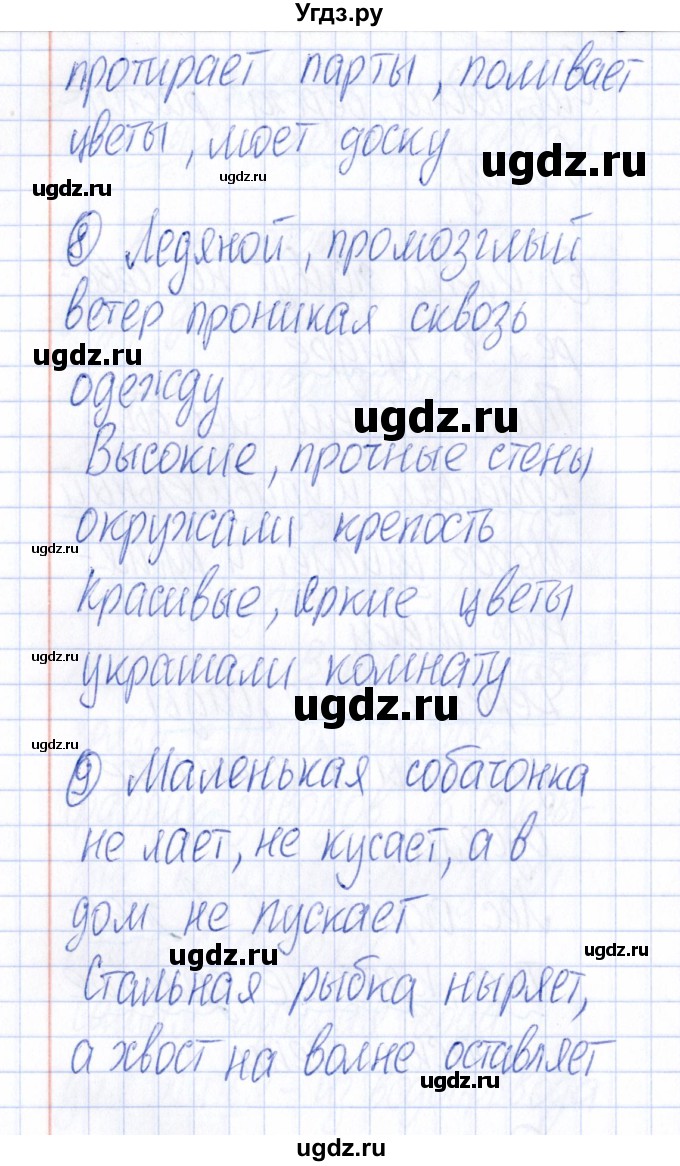 Угдз.ру
протирает парты, поливает
цветы, моет доску
ugdz.ru
ugdz.ru
ugdz.ru
8 Ледяной, промозглый
ветер проникая сквозь
ugdz.ru
одежду
ugdz.ru
Высокие, прочные стены
окружали крепость
ugdz.ru
Красивые, яркие цветы
ugdz.ru
украшали комнату
ugdz.ru
ugdz.ru
9 Маленькая собачонка
не лает, не кусает, а в
дом не пускает
ugdz.ru
ugdz.ru
Стальная рыбка ныряет,
а хвост на волне оставляет
ugdz.ru
ugdz.ru